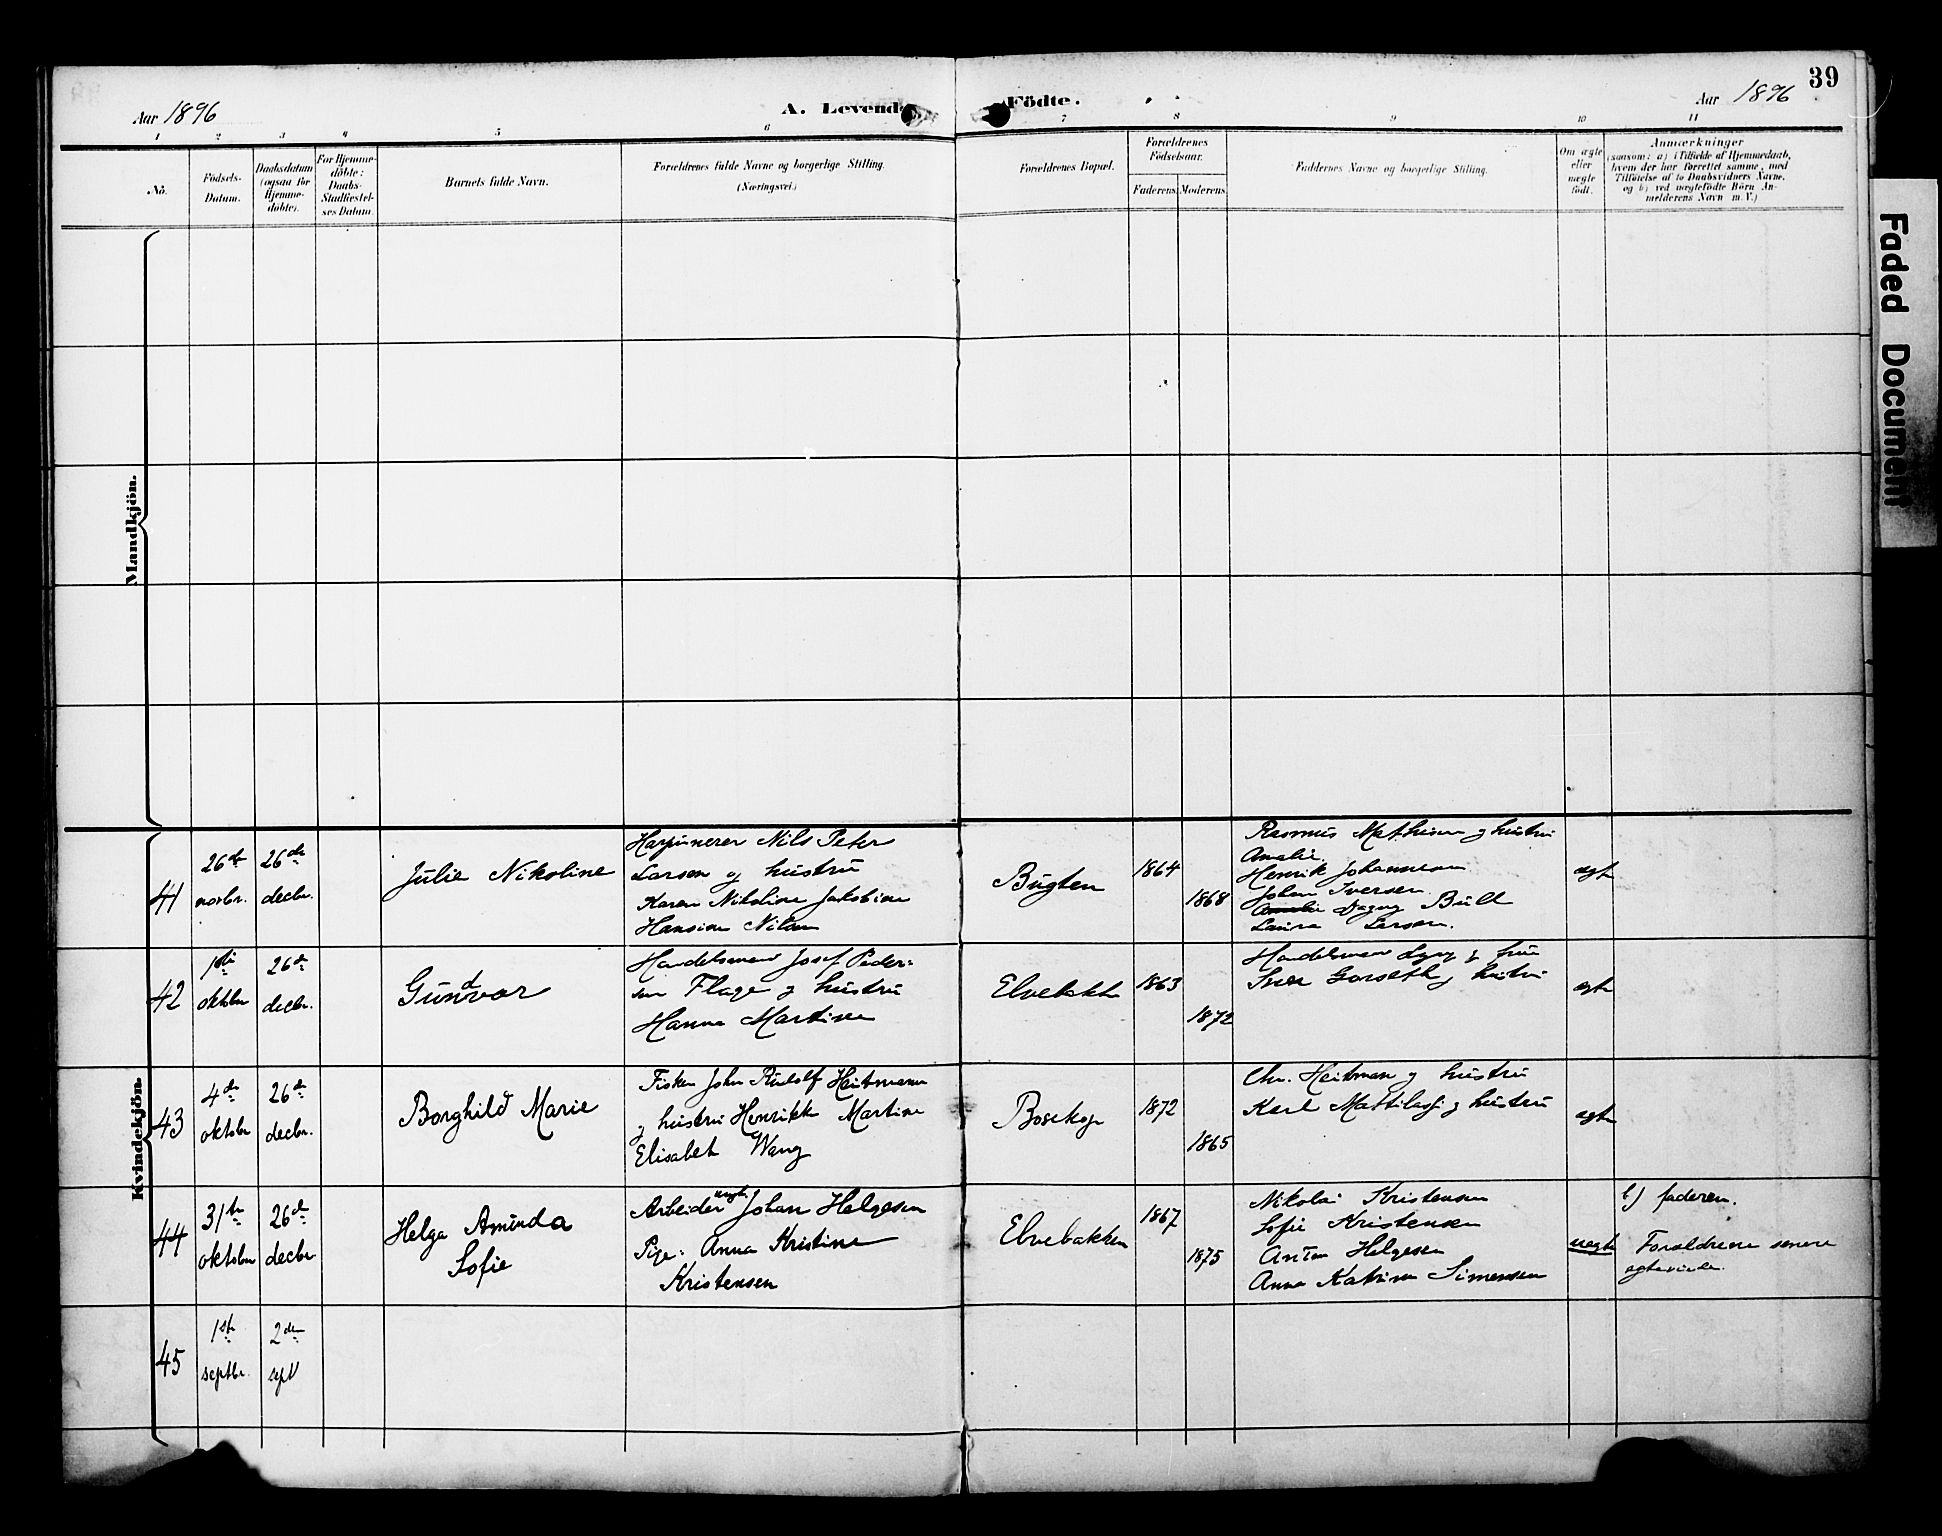 39
Aar 1896
A. Levende Födte.
Aar 1896
1 2 3 4 5 6 7 8 9 10 11
No.
Födsels-
Datum.
Daabsdatum
(ogsaa for
Hjemme-
döbte).
For Hjemme-
döbte:
Daabs-
Stadfæstel-
ses Datum.
Barnets fulde Navn.
Forældrenes fulde Navne og borgerlige Stilling.
(Næringsvei.)
Forældrenes Bopæl.
Forældrenes
Födselsaar.
Faderens
Moderens
Faddernes Navne og borgerlige Stilling.
Om ægte
eller
uægte
födt.
Anmærkninger
(saasom: a) i Tilfælde af Hjemmedaab,
hvem der har forrettet samme, med
Tilföielse af to Daabsvidners Navne,
og b) ved uægtefödte Börn An-
melderens Navn m. V.)
Mandkjön.
Kvindekjön.
41
26de
novbr.
26de
decbr.
Julie Nikoline
Harpunerer Nils Peter
Larsen og hustru
Karen Nikoline Jakobine
Hansine Nilsen
Bugten
1864
1868
Rasmus Mathisen og hustru
Amalie.
Henrik Johannesen
Johan Iversen
Amalie Dagny Bull
Laura Larsen.
ægte
42
1ste
oktober
26de
decbr.
Gundvor
Handelsmand Josef Peder-
sen Flage og hustru
Hanna Martine
Elvebakke
1863
1872
Handelsmand Lyng og frue
Iver Gorseth og hustru
ægte
43
4de
oktober
26de
decbr.
Borghild Marie
Fisker John Rudolf Heitmann
og hustru Henrikke Martine
Elisabet Wang
Bosekop
1872
1865
Chr. Heitman og hustru
Karl Mattilas og hustru
ægte
44
31te
oktober
26de
decbr
Helga Aminda
Sofie
Arbeider ungk. Johan Helgesen
Pige: Anna Kristine
Kristensen
Elvebakken
1867
1875
Nikolai Kristensen
Sofie Kristensen
Anton Helgesen
Anna Katrine Simensen
uægte
b) faderen.
Forældrene senere
ægteviede.
45
1ste
septbr.
2den
sept
Faded Document